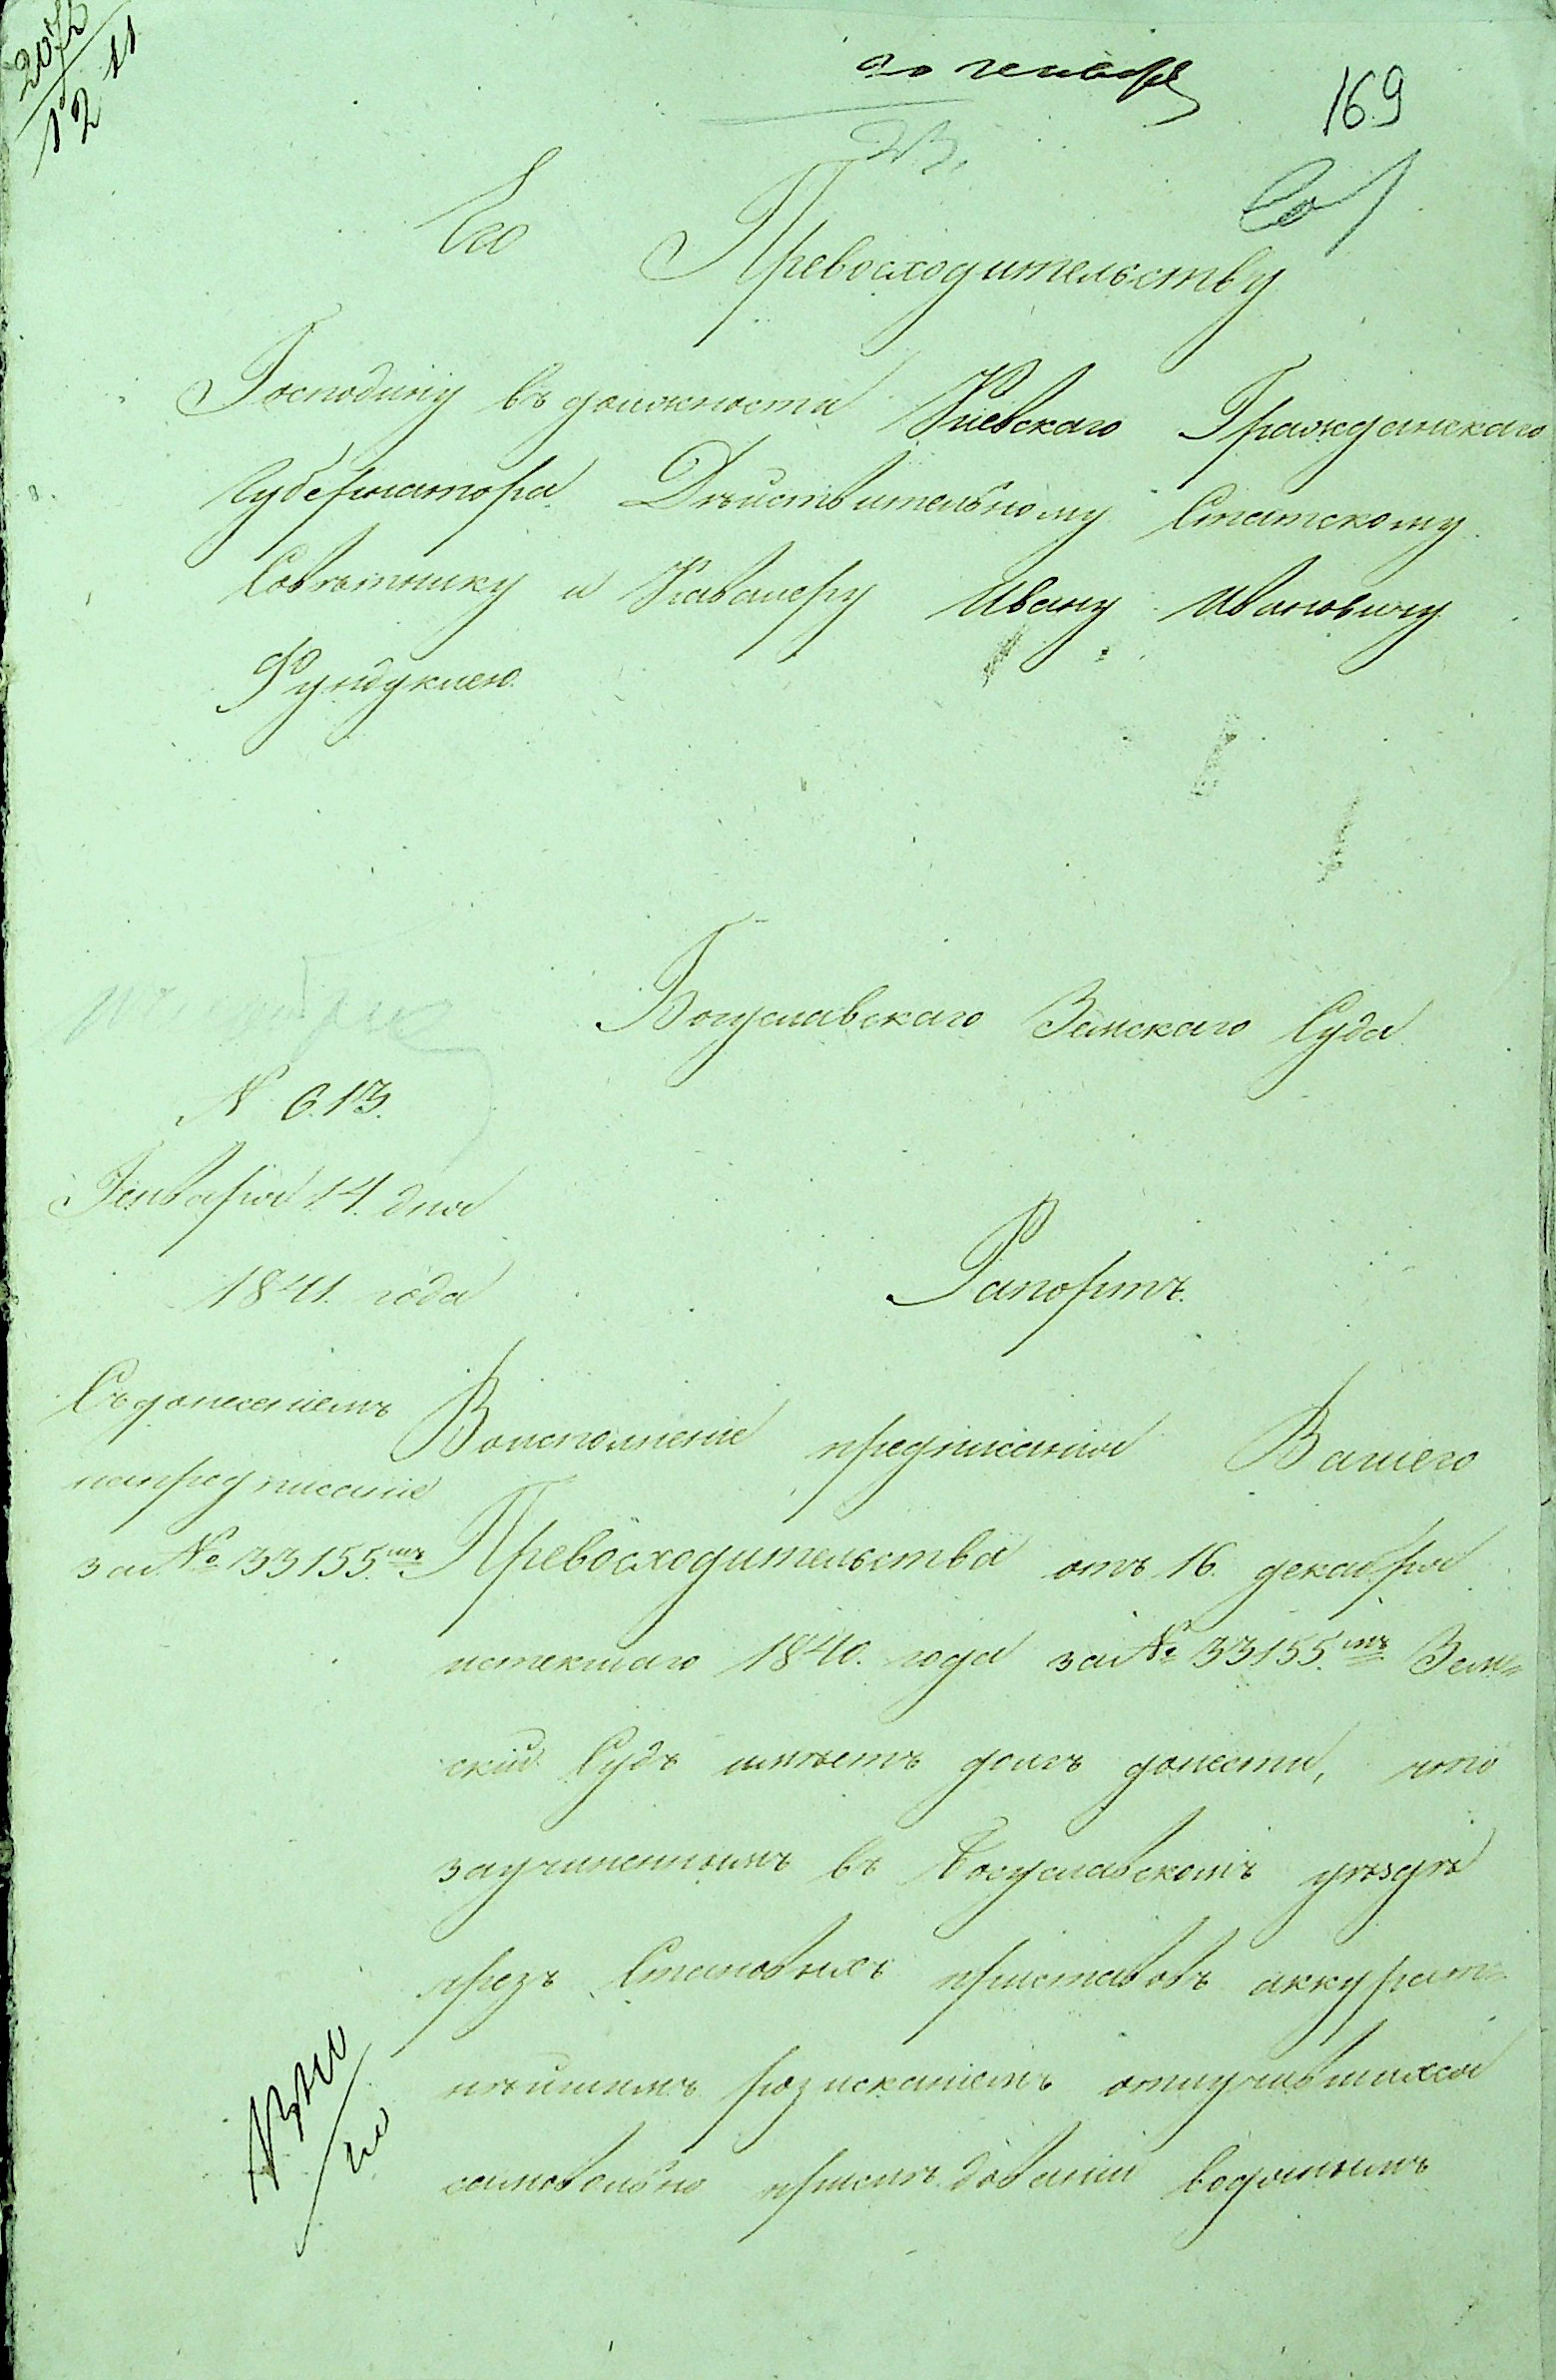 20 генваря
169
Его Превосходительству
Господину въ должности Киевскаго Гражданскаго
Губернатора Дѣйствительному Статскому
Совѣтнику и Кавалеру Ивану Ивановичу
Фундуклею.
Богуславскаго Земскаго Суда
N 613.
Генваря 14. дня
1841. года
Рапортъ.
Съ донесеніемъ
напредписаніе
за № 33155.мъ
Воисполненіе предписанія Вашего
Превосходительства отъ 16. декабря
истекшаго 1840. года за № 33155.мъ Зем=
скій Судъ имѣетъ долгъ донести, что
заучиненнымъ въ Богуславскомъ уѣздѣ
чрезъ Становыхъ приставовъ аккурат=
нѣйшимъ розисканіемъ отлучившихся
самовольно при